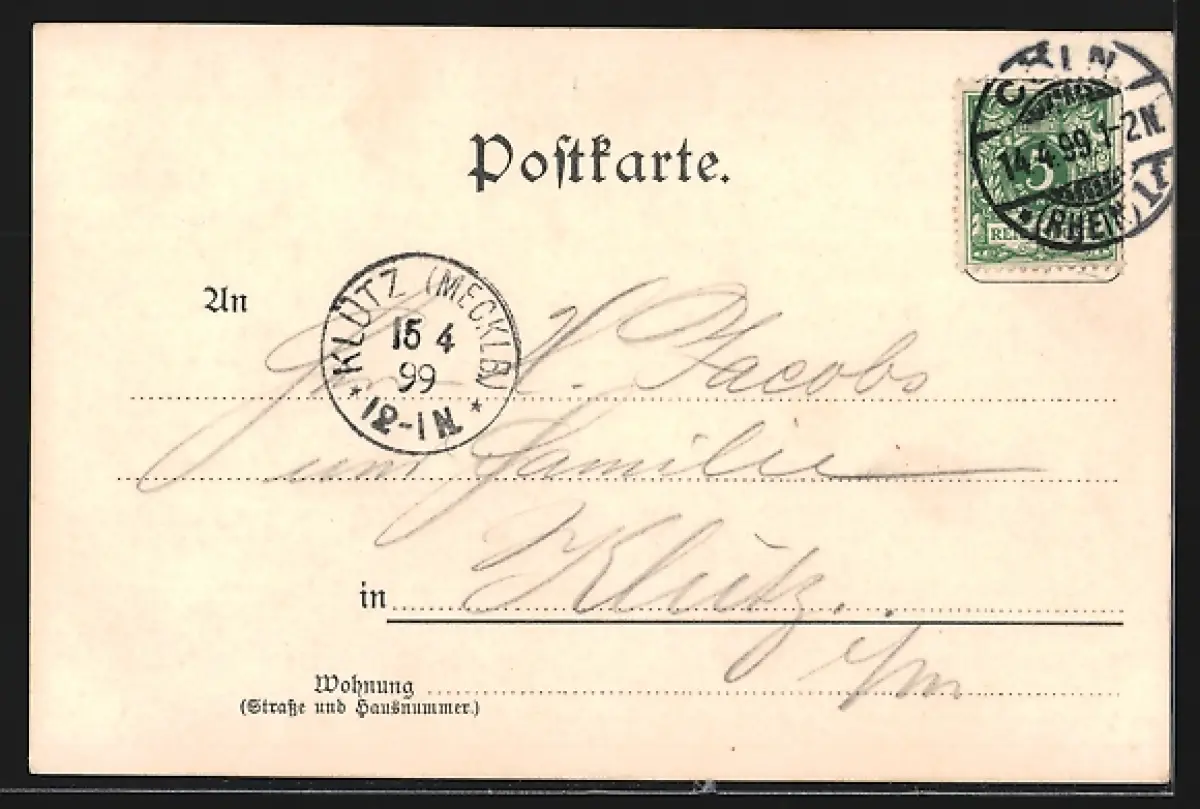 Postkarte.
CÖLN
14.4.99.1-2N.
*(RHEIN)1f
5
An
KLÜTZ (MECKLB)
15 4
99
* 12-1N. *
H. Jacobs
und Familie
in Klütz.
i/m
Wohnung
(Straße und Hausnummer.)